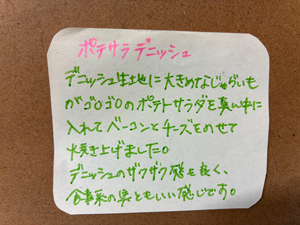 ポテサラデニッシュ
デニッシュ生地に大きめなじゃがいも
がゴロゴロのポテトサラダを真ん中に
入れてベーコンとチーズをのせて
焼き上げました。
デニッシュのザクザク感も良く、
食事系の臭ともいい感じです。